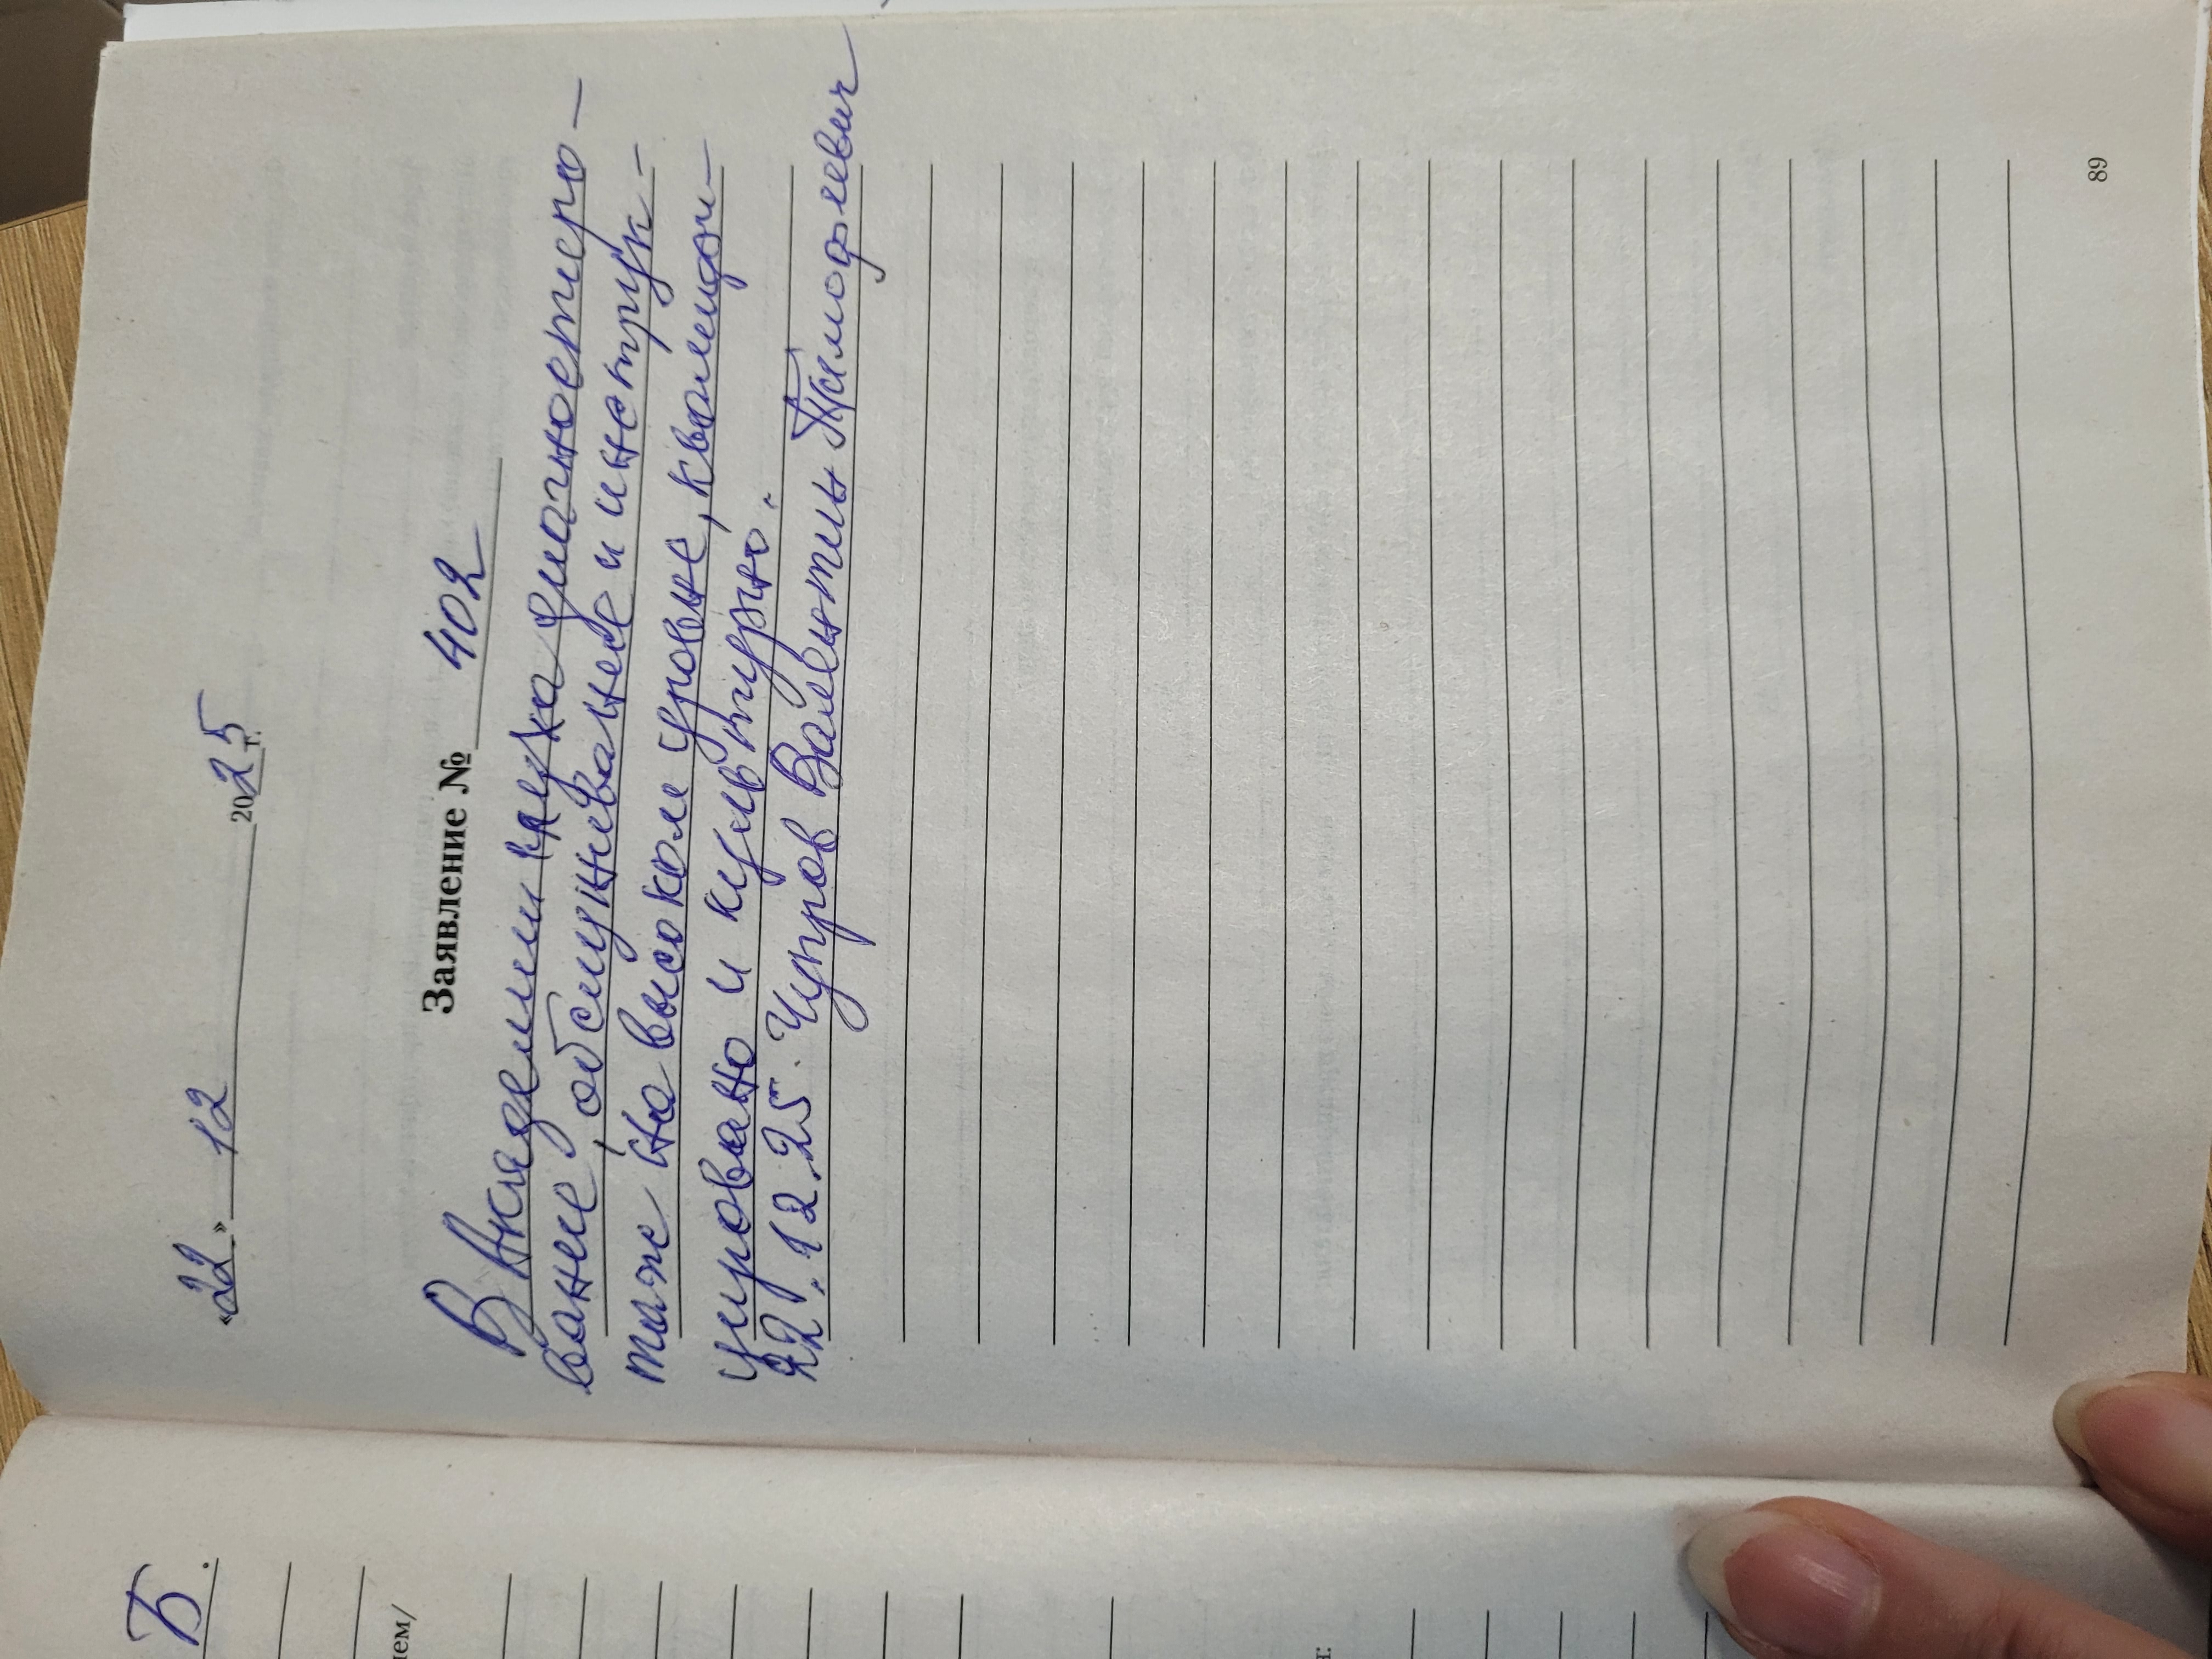 «22» 12 2025 г.
Заявление № 402
В Академии слуха диагностиро-
вание, обслуживание и инструк-
таж на высоком уровне, квалифи-
цировано и культурно.
22.12.25. Чупров Валентин Тимофеевич
89
Б.
ием/